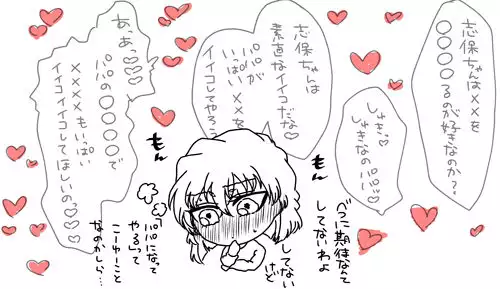 志保ちゃんは××を
〇〇〇〇るのが好きなのか?
しゅき♡
しゅきなのパパ♡♡
志保ちゃんは
素直なイイコだな♡
パパが
いっぱい××を
イイコしてやろう
あっあっ♡♡♡
パパの〇〇〇〇で
××××もいっぱい
イイコイイコして
ほしいのっ♡♡♡
もん
もん
べつに期待なんて
してないわよ
してない
けど
パパになって
やるって
こーゆーこと
なのかしら…